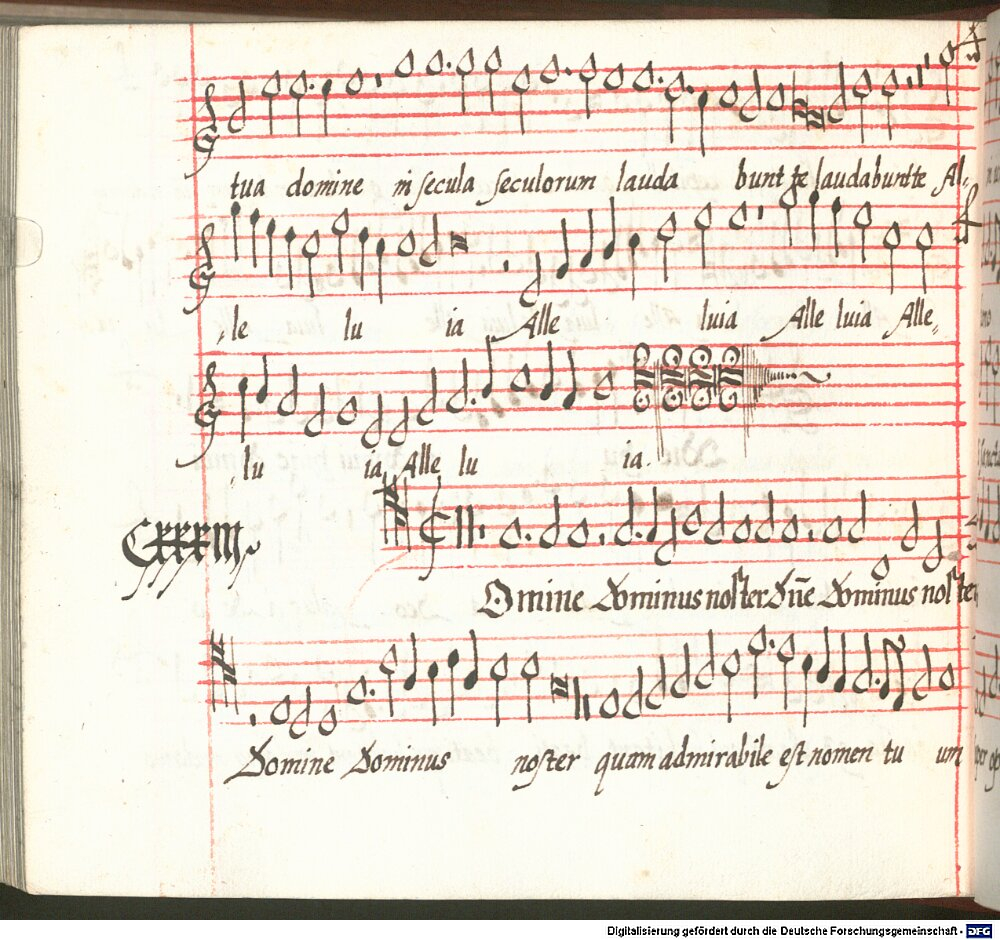 tua domine in secula seculorum lauda bunt te laudabuntte Al-
le lu ia Alle luia Alle luia Alle-
lu ia Alle lu ia.
CXXXIII
Domine Dominus noster Dñe Dominus noster
Domine Dominus noster quam admirabile est nomen tu um
Digitalisierung gefördert durch die Deutsche Forschungsgemeinschaft - DFG